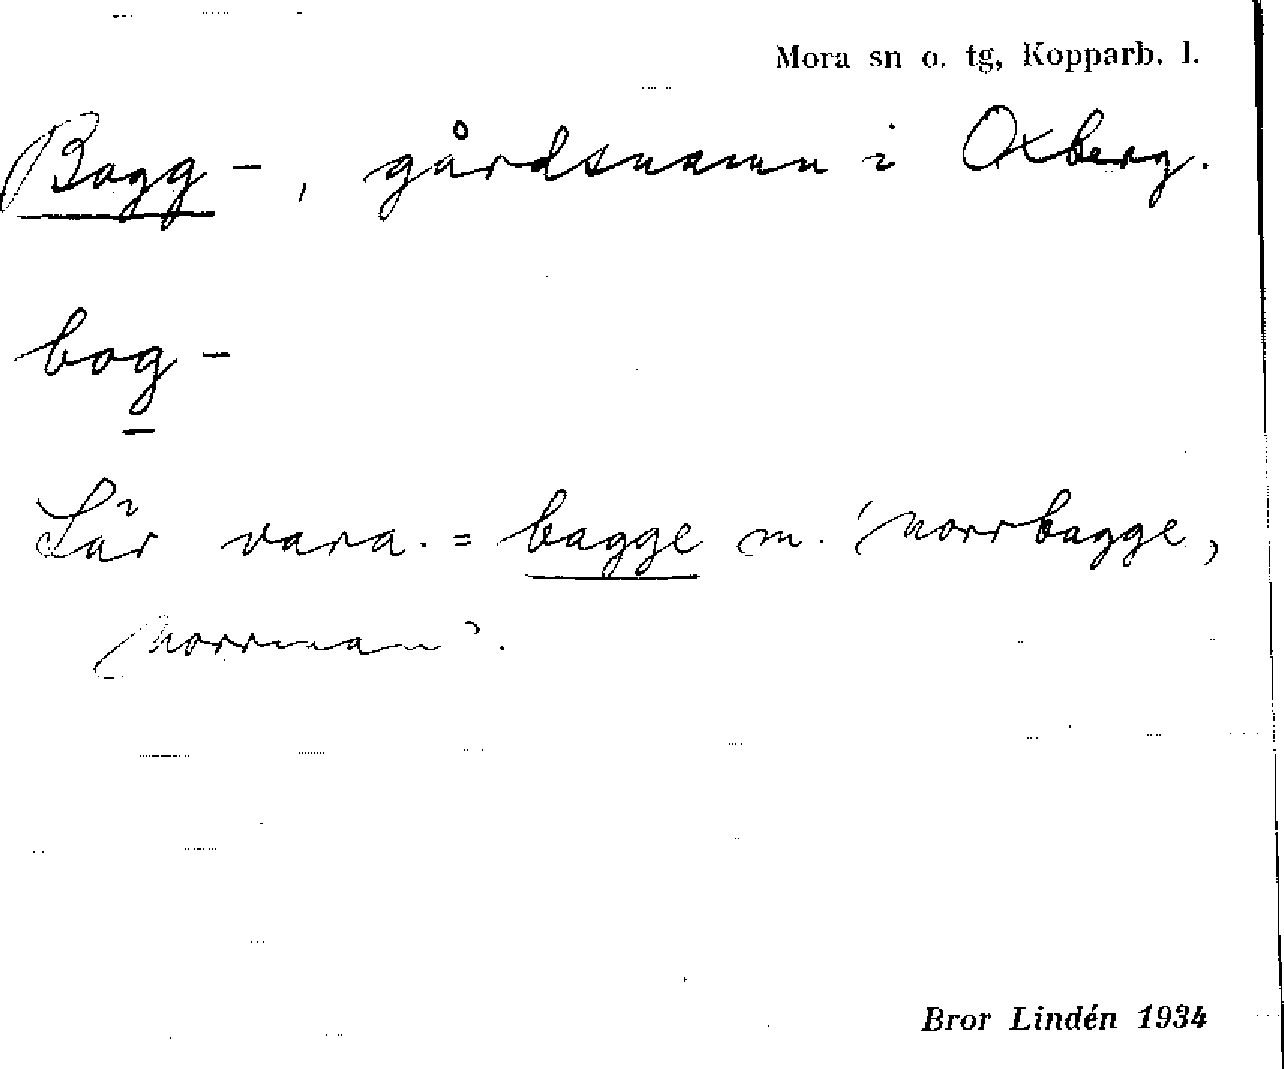 Mora sn o. tg, Kopparb. l.
Bagg-, gårdsnamn i Oxberg.
bog-
Lär vara = bagge m. 'norrbagge,
norrman'.
Bror Lindén 1934